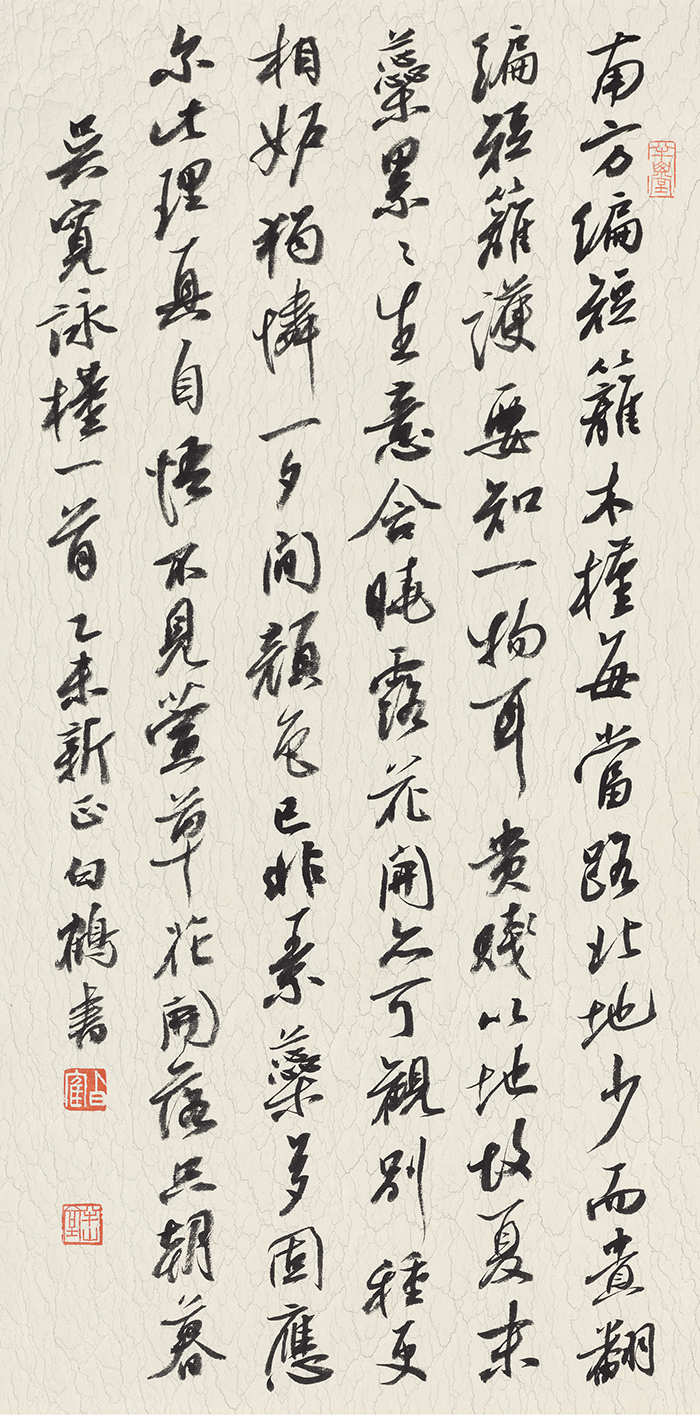 南方编短籬木槿每當路北地少而貴翻
编短籬護要知一物耳貴賤以地故夏末
蘂累々生意含曉露花開亦可觀别種更
相妒獨憐一夕间顏色已非素蘂多固應
尔此理真自悟不見萱草花開落只朝暮
吴寬詠槿一首乙未新正白鶴書